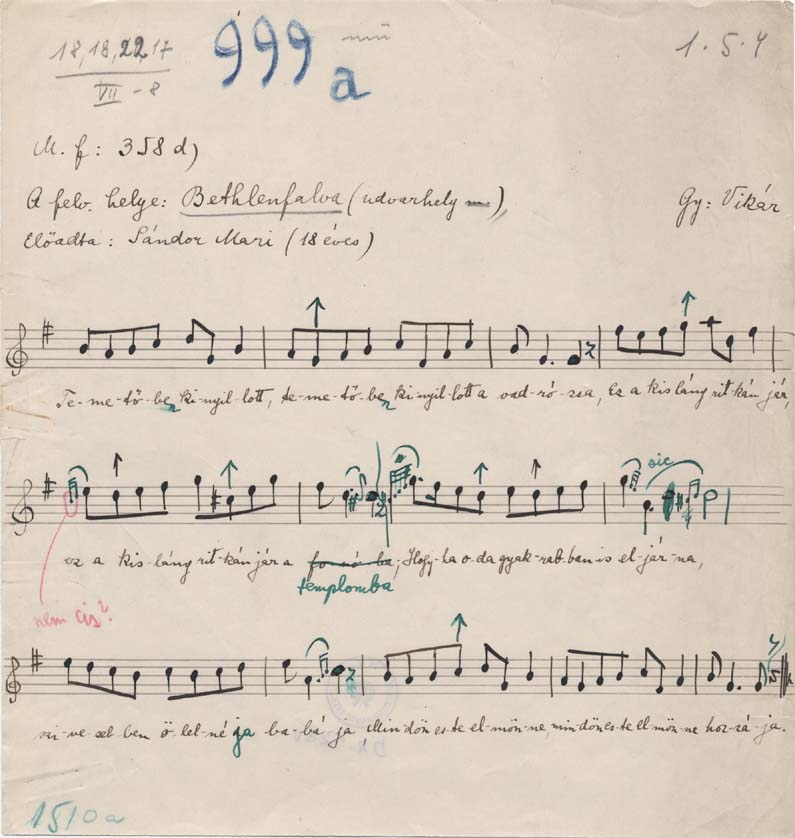 18, 18, 22, 17
VII - 8
999 a
1. 5. 4
M. f: 358 d)
A felv. helye: Bethlenfalva (udvarhely m)
Gy: Vikár
Előadta: Sándor Mari (18 éves)
Te-me-tő-ben ki-nyil-lott, te-me-tő-ben ki-nyil-lott a vad-ró-zsa, Ez a kis láng rit-kán jár,
sic
ez a kis-láng rit-kán jár a fo-nó-ba; Hogy-ha o-da gyak-rab-ban is el-jár-na,
templomba
nem cis?
szi-ve-seb-ben ö-lel-né ja ba-bá-ja, Min-dön es-te el-mön-ne, min-dön es-te el-mön-ne hoz-zá-ja.
1510a